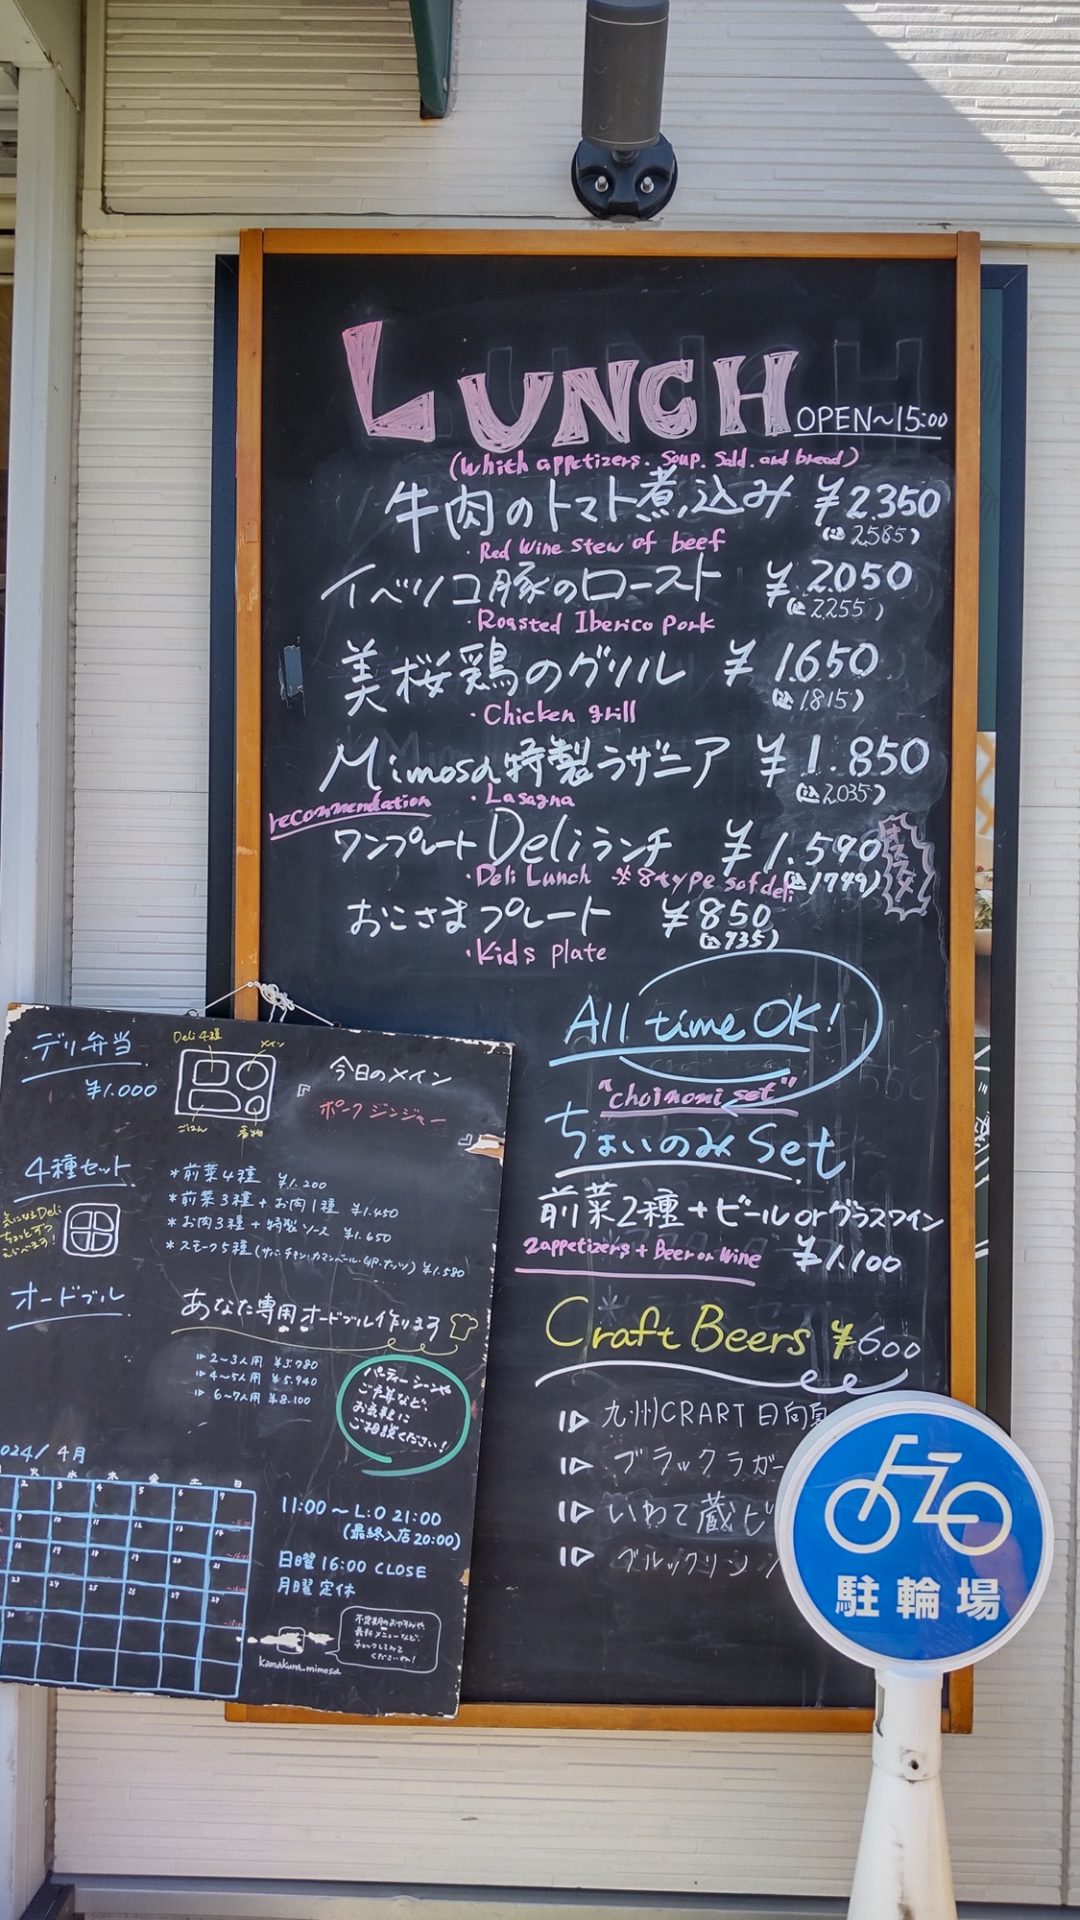 LUNCH OPEN~15:00
(Whith appetizers. Soup. Sald. and bread)
牛肉のトマト煮込み ¥2.350
(込2585)
・Red Wine stew of beef
イベリコ豚のロースト ¥2050
(込2255)
・Roasted Iberico pork
美桜鶏のグリル ¥1650
(込1815)
・Chicken grill
Mimosa特製ラザニア ¥1.850
(込2.035)
・Lasagna
recommendation
ワンプレートDeliランチ ¥1.590
・Deli Lunch ※8type sof deli (込1749)
おこさまプレート ¥850
(込935)
・Kids plate
All time OK!
"choinomi set"
ちょいのみSet
前菜2種+ビールorグラスワイン
2appetizers+Beer or Wine ¥1.100
Craft Beers ¥600
九州CRART日向夏
ブラックラガー
いわて蔵ビ
ブルックリン
駐輪場
デリ弁当
¥1.000
Deli4種
メイン
ごはん
『今日のメイン
ポークジンジャー』
4種セット
気になるDeli
ちょっとずつ
えらべます!
*前菜4種 ¥1.200
*前菜3種+お肉1種 ¥1.450
*お肉3種+特製ソース ¥1.650
*スモーク5種 ¥1.580
オードブル
あなた専用オードブル作ります
2~3人用 ¥3.780
4~5人用 ¥5.940
6~7人用 ¥8.100
パーティーシーンや
ご予算など、
お気軽に
ご相談ください!
2024/4月
火 水 木 金 土 日
2 3 4 5 6 7
11:00~L:O 21:00
(最終入店20:00)
日曜16:00 CLOSE
月曜定休
不定期のおやすみや
最新メニューなど、
チェックしてみて
くださいね!
kamakura_mimosa